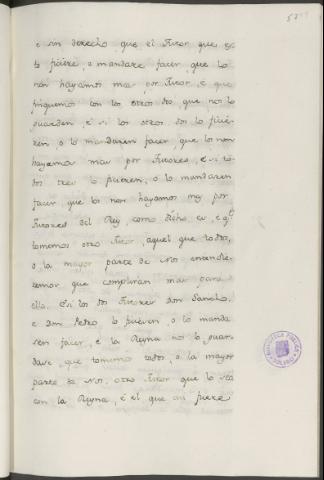 57
e sin derecho, que el Tutor que es
to ficiere o mandare facer, que lo
non hayamos mas por Tutor, e que
finquemos con los otros dos, que nos lo
guarden, e si los otros dos lo ficie-
ren, o lo mandaren facer, que los non
hayamos mas por Tutores, e si to-
dos tres lo ficieren, o lo mandaren
facer que los non hayamos mas por
Tutores del Rey, como dicho es, e q.e
tomemos otro Tutor, aquel que todos,
o la mayor parte de Nos entendie-
remos que complirán mas para
ello. E si los dos Tutores don Sancho,
e don Pedro lo ficieren, o lo manda-
ren facer, e la Reyna no lo guar-
dare, que tomemos todos, o la mayor
parte de Nos, otro Tutor que lo sea
con la Reyna, e el que asi fuere
BIBLIOTECA PUBLICA
TOLEDO